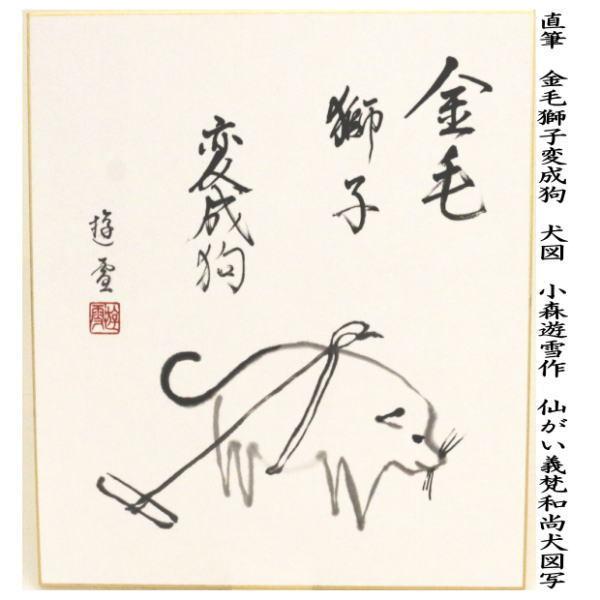 直筆　金毛獅子変成狗　犬図　小森遊雪作　仙がい義梵和尚犬図写
金毛
獅子
変成狗
遊雪
遊雪